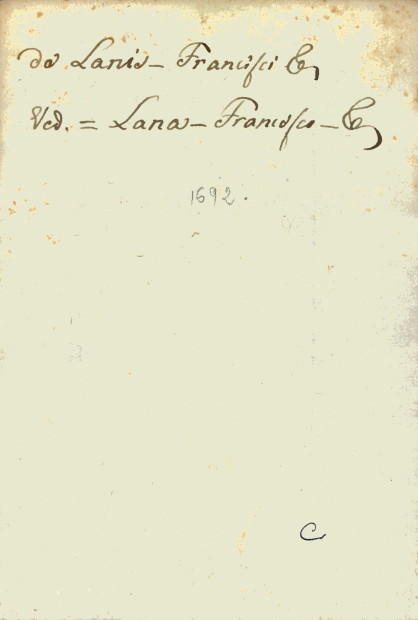 de Lanis – Francisci &c
Ved. = Lana – Francesco – &c
1692.
C